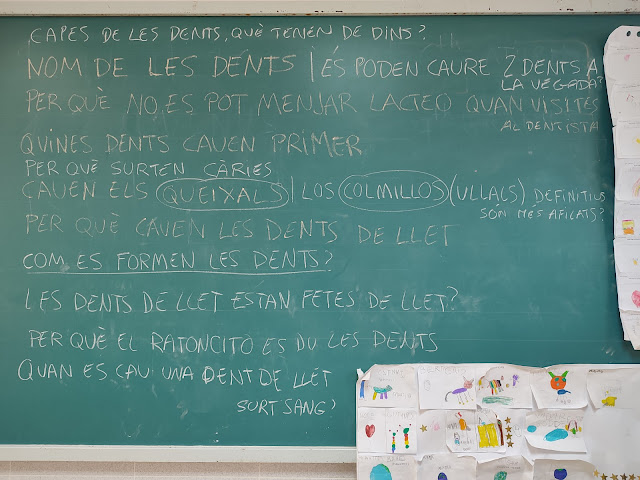 CAPES DE LES DENTS, QUÈ TENEN DE DINS?
NOM DE LES DENTS | ÉS PODEN CAURE 2 DENTS A
LA VEGADA?
PER QUÈ NO ES POT MENJAR LACTEO QUAN VISITES
AL DENTISTA
QUINES DENTS CAUEN PRIMER
PER QUÈ SURTEN CÀRIES
CAUEN ELS QUEIXALS | LOS COLMILLOS (ULLALS) DEFINITIUS
SÓN MES AFILATS?
PER QUÈ CAUEN LES DENTS DE LLET
COM ES FORMEN LES DENTS?
LES DENTS DE LLET ESTAN FETES DE LLET?
PER QUÈ EL RATONCITO ES DU LES DENTS
QUAN ES CAU UNA DENT DE LLET
SURT SANG?